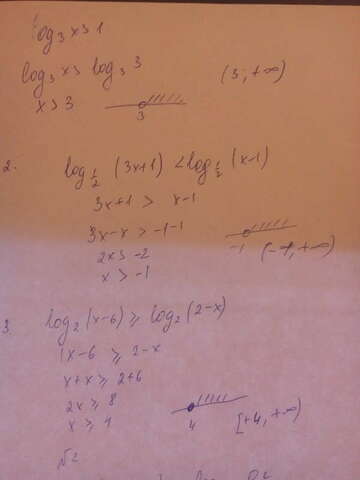 log₃ x > 1
log₃ x > log₃ 3 (3; +∞)
x > 3
3
2.
log_{1/2} (3x+1) < log_{1/2} (x-1)
3x+1 > x-1
3x-x > -1-1
2x > -2
-1 (-1, +∞)
x > -1
3. log₂ (x-6) ≥ log₂ (2-x)
x-6 ≥ 2-x
x+x ≥ 2+6
2x ≥ 8
x ≥ 4
4 [+4, +∞)
№2